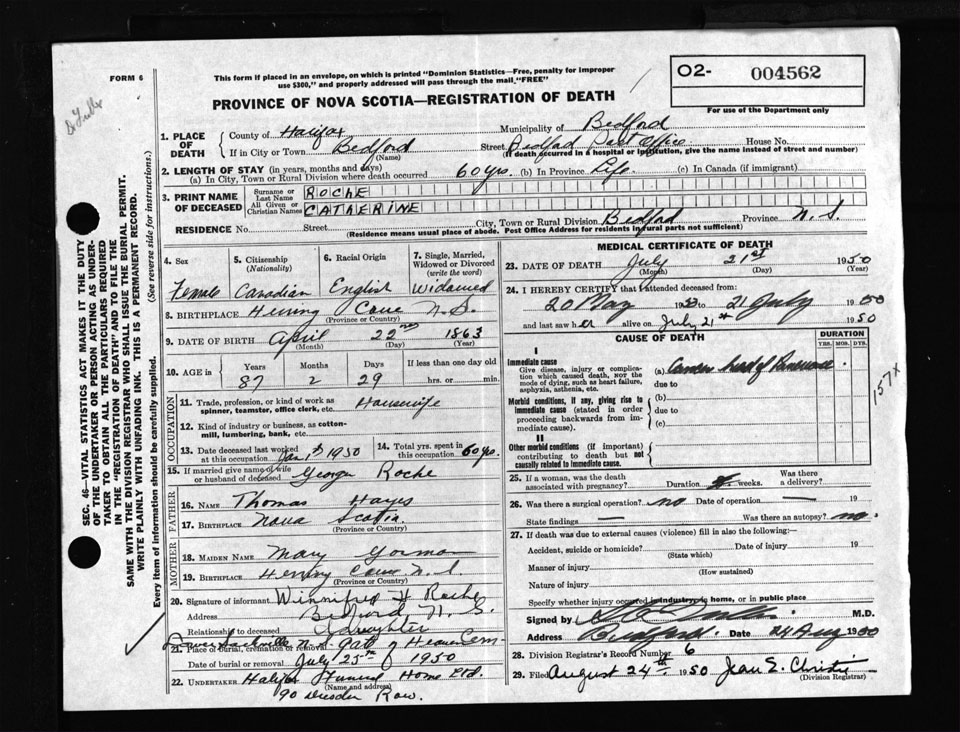 FORM 6
This form if placed in an envelope, on which is printed "Dominion Statistics—Free, penalty for improper
use $300," and properly addressed will pass through the mail "FREE"
O2- 004562
For use of the Department only
PROVINCE OF NOVA SCOTIA—REGISTRATION OF DEATH
SEC. 46—VITAL STATISTICS ACT MAKES IT THE DUTY
OF THE UNDERTAKER OR PERSON ACTING AS UNDER-
TAKER TO OBTAIN ALL THE PARTICULARS REQUIRED
IN THE "REGISTRATION OF DEATH" AND TO FILE THE
SAME WITH THE DIVISION REGISTRAR WHO SHALL ISSUE THE BURIAL PERMIT.
WRITE PLAINLY WITH UNFADING INK. THIS IS A PERMANENT RECORD.
Every item of information should be carefully supplied. (See reverse side for instructions.)
1. PLACE OF DEATH
County of Halifax Municipality of Bedford
If in City or Town Bedford Street Bedford Post Office House No.
(Name) (If death occurred in a hospital or institution, give the name instead of street and number)
2. LENGTH OF STAY (in years, months and days)
(a) In City, Town or Rural Division where death occurred 60 yrs. (b) In Province Life (c) In Canada (if immigrant)
3. PRINT NAME OF DECEASED
Surname or Last Name ROCHE
All Given or Christian Names CATHERINE
RESIDENCE No. Street City, Town or Rural Division Bedford Province N.S.
(Residence means usual place of abode. Post Office Address for residents in rural parts not sufficient)
4. Sex Female
5. Citizenship (Nationality) Canadian
6. Racial Origin English
7. Single, Married, Widowed or Divorced (write the word) Widowed
8. BIRTHPLACE Herring Cove N.S.
(Province or Country)
9. DATE OF BIRTH April 22nd 1863
(Month) (Day) (Year)
10. AGE in Years Months Days If less than one day old
87 2 29 hrs. or min.
OCCUPATION
11. Trade, profession, or kind of work as spinner, teamster, office clerk, etc. Housewife
12. Kind of industry or business, as cotton-mill, lumbering, bank, etc.
13. Date deceased last worked at this occupation Jan 1st 1950
14. Total yrs. spent in this occupation 60 yrs.
15. If married give name of wife or husband of deceased George Roche
FATHER
16. NAME Thomas Hayes
17. BIRTHPLACE Nova Scotia
(Province or Country)
MOTHER
18. MAIDEN NAME Mary Gorman
19. BIRTHPLACE Herring Cove N.S.
(Province or Country)
20. Signature of informant Winnifred Roche
Address Bedford N.S.
Relationship to deceased daughter
Lower Sackville N.S.
21. Place of burial, cremation or removal Gate of Heaven Cem
Date of burial or removal July 25th 1950
22. UNDERTAKER Halifax Funeral Home Ltd.
(Name and address)
90 Dresden Row.
MEDICAL CERTIFICATE OF DEATH
23. DATE OF DEATH July 21st 1950
(Month) (Day) (Year)
24. I HEREBY CERTIFY that I attended deceased from:
20 May to 21 July 1950
and last saw her alive on July 21st 1950
CAUSE OF DEATH DURATION
YRS. MOS. DYS.
I
Immediate cause
Give disease, injury or complication which caused death, not the mode of dying, such as heart failure, asphyxia, asthenia, etc.
(a) head of Pancreas
due to
Morbid conditions, if any, giving rise to immediate cause (stated in order proceeding backwards from immediate cause).
(b)
due to
(c)
II
Other morbid conditions (if important) contributing to death but not causally related to immediate cause.
157X
25. If a woman, was the death associated with pregnancy? Duration weeks. Was there a delivery?
26. Was there a surgical operation? no Date of operation — 19
State findings — Was there an autopsy? no.
27. If death was due to external causes (violence) fill in also the following:
Accident, suicide or homicide? Date of injury 19
(State which)
Manner of injury
(How sustained)
Nature of injury
Specify whether injury occurred in industry, in home, or in public place
Signed by M.D.
Address Bedford. Date 24 Aug 1950
28. Division Registrar's Record Number 6
29. Filed August 24th 1950 Jean E. Christie
(Division Registrar)